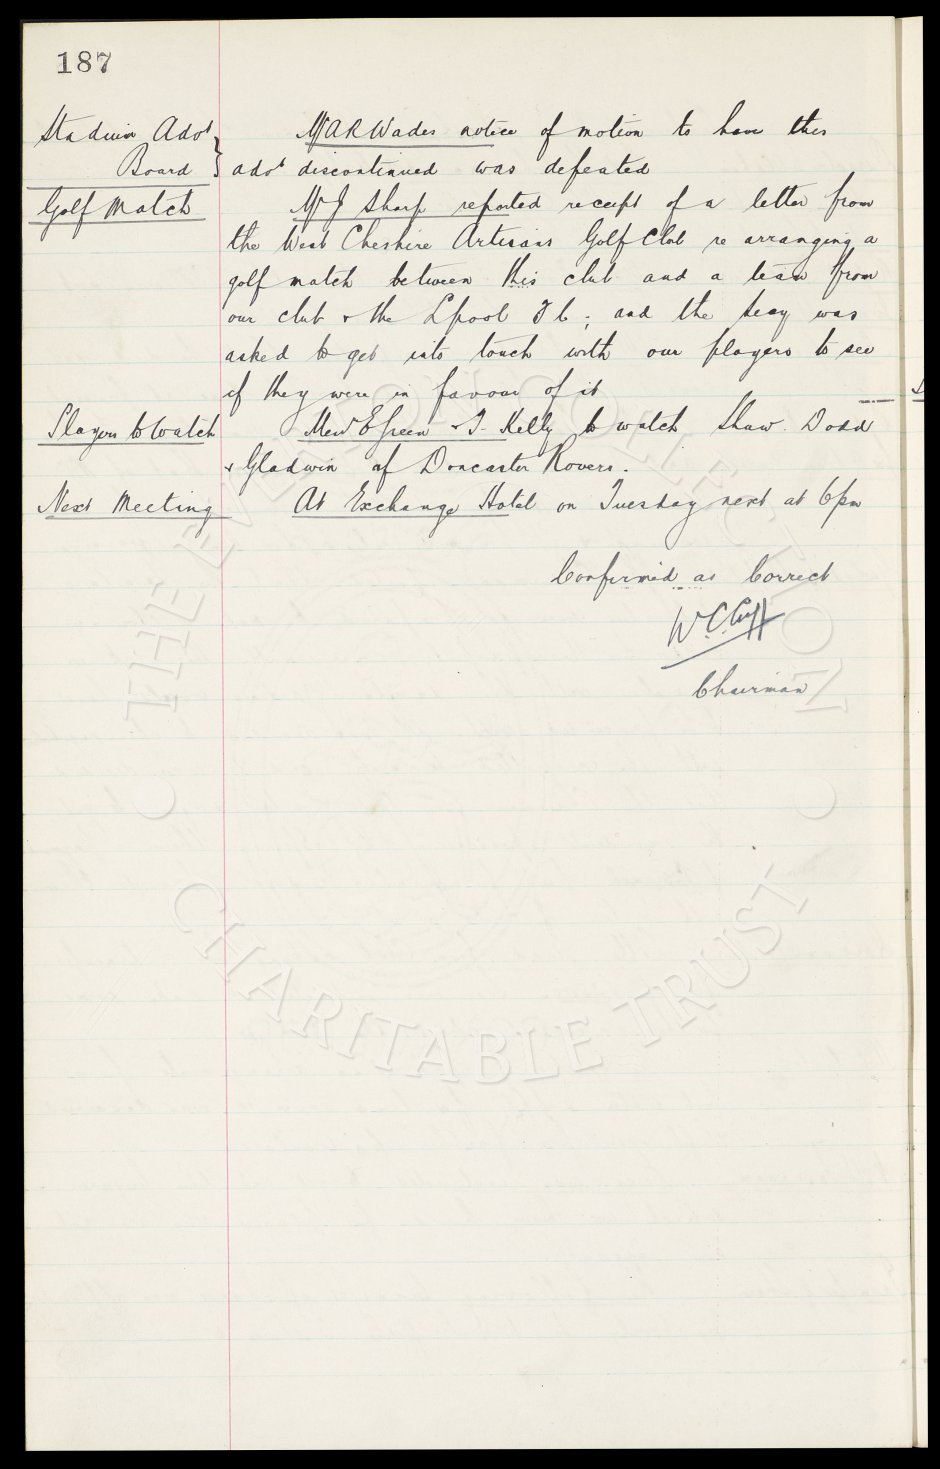 187
Stadium Advt Board } Mr A R Wades notice of motion to have this
advt discontinued was defeated
Golf Match Mr J Sharp reported receipt of a letter from
the West Cheshire Artisans Golf Club re arranging a
golf match between this club and a team from
our club & the Lpool F C; and the Secy was
asked to get into touch with our players to see
if they were in favour of it
Players to Watch Messrs E Green & T. Kelly to watch Shaw. Dodd
& Gladwin of Doncaster Rovers.
Next Meeting At Exchange Hotel on Tuesday next at 6pm
Confirmed as Correct
W.C. Cuff
Chairman
THE EVERTON COLLECTION
CHARITABLE TRUST